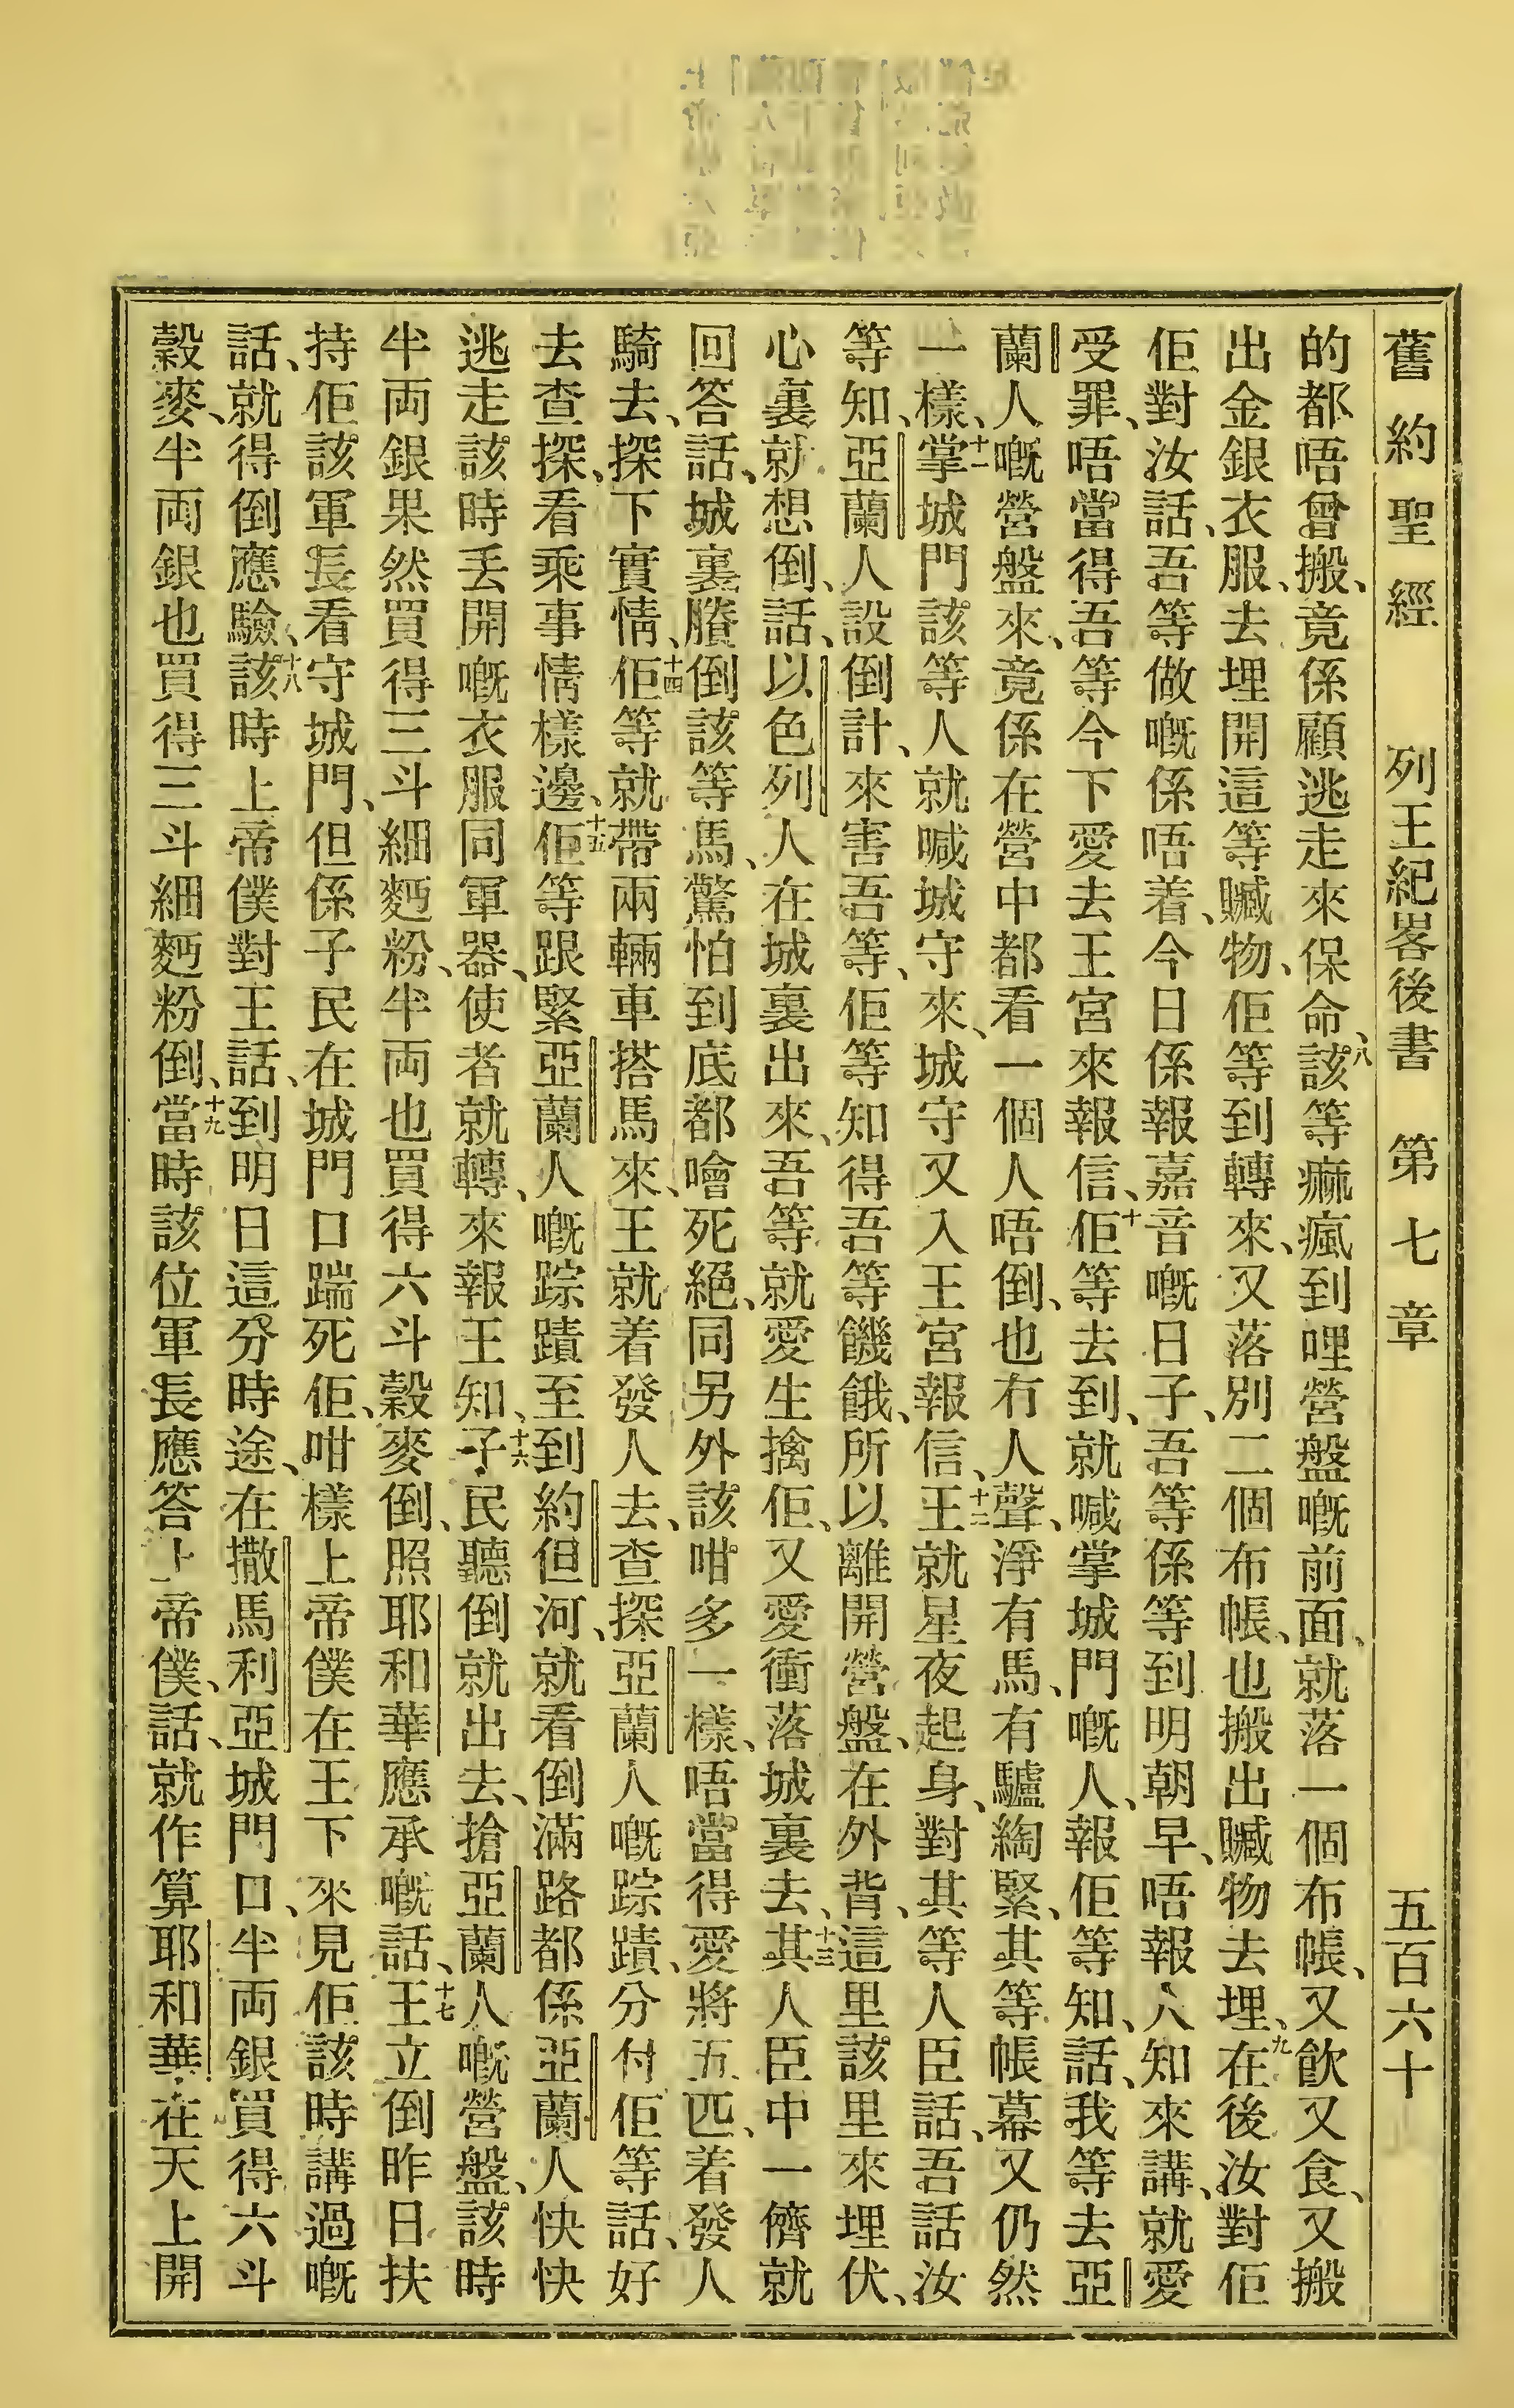 舊約聖經 列王紀畧後書 第七章 五百六十
的都唔曾搬、竟係顧逃走來保命、八該等痲瘋到哩營盤嘅前面、就落一個布帳、又飲又食、又搬
出金銀衣服、去埋開這等贓物、佢等到轉來、又落別二個布帳、也搬出贓物去埋、九在後汝對佢
佢對汝話、吾等做嘅係唔着、今日係報嘉音嘅日子、吾等係等到明朝早、唔報人知來講、就愛
受罪、唔當得吾等今下愛去王宮來報信、十佢等去到、就喊掌城門嘅人、報佢等知、話、我等去亞
蘭人嘅營盤來、竟係在營中都看一個人唔倒、也冇人聲、淨有馬、有驢綯緊、其等帳幕又仍然
一樣、十一掌城門該等人就喊城守來、城守又入王宮報信、十二王就星夜起身、對其等人臣話、吾話汝
等知、亞蘭人設倒計、來害吾等、佢等知得吾等饑餓、所以離開營盤、在外背、這里該里來埋伏、
心裏就想倒、話、以色列人在城裏出來、吾等就愛生擒佢、又愛衝落城裏去、十三其人臣中一儕就
回答話、城裏賸倒該等馬、驚怕到底都噲死絕、同另外該咁多一樣、唔當得愛將五匹、着發人
騎去、探下實情、十四佢等就帶兩輛車搭馬來、王就着發人去、查探亞蘭人嘅踪蹟、分付佢等話、好
去查探、看乘事情樣邊、十五佢等跟緊亞蘭人嘅踪蹟至到約但河、就看倒滿路都係亞蘭人快快
逃走該時丢開嘅衣服同軍器、使者就轉、來報王知、十六子民聽倒就出去、搶亞蘭人嘅營盤、該時
半両銀果然買得三斗細麪粉、半両也買得六斗穀麥倒、照耶和華應承嘅話、十七王立倒昨日扶
持佢該軍長看守城門、但係子民在城門口踹死佢、咁樣上帝僕在王下來見佢該時講過嘅
話、就得倒應驗、十八該時上帝僕對王話、到明日這分時途、在撒馬利亞城門口、半両銀買得六斗
穀麥、半両銀也買得三斗細麪粉倒、十九當時該位軍長應答上帝僕、話、就作算耶和華在天上開